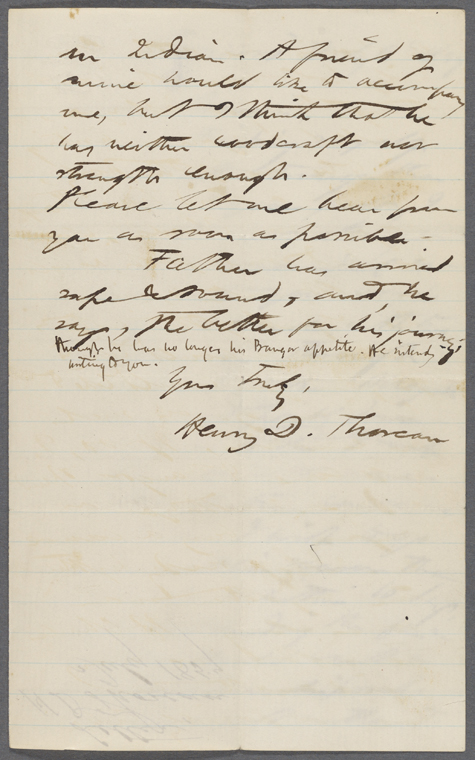 an Indian. A friend of
mine would like to accompany
me, but I think that he
has neither woodcraft nor
strength enough.
Please let me hear from
you as soon as possible.
Father has arrived
safe & sound, and, he
says, the better for his journey,
though he has no longer his Bangor appetite. He intends
writing to you.
Yrs truly,
Henry D. Thoreau